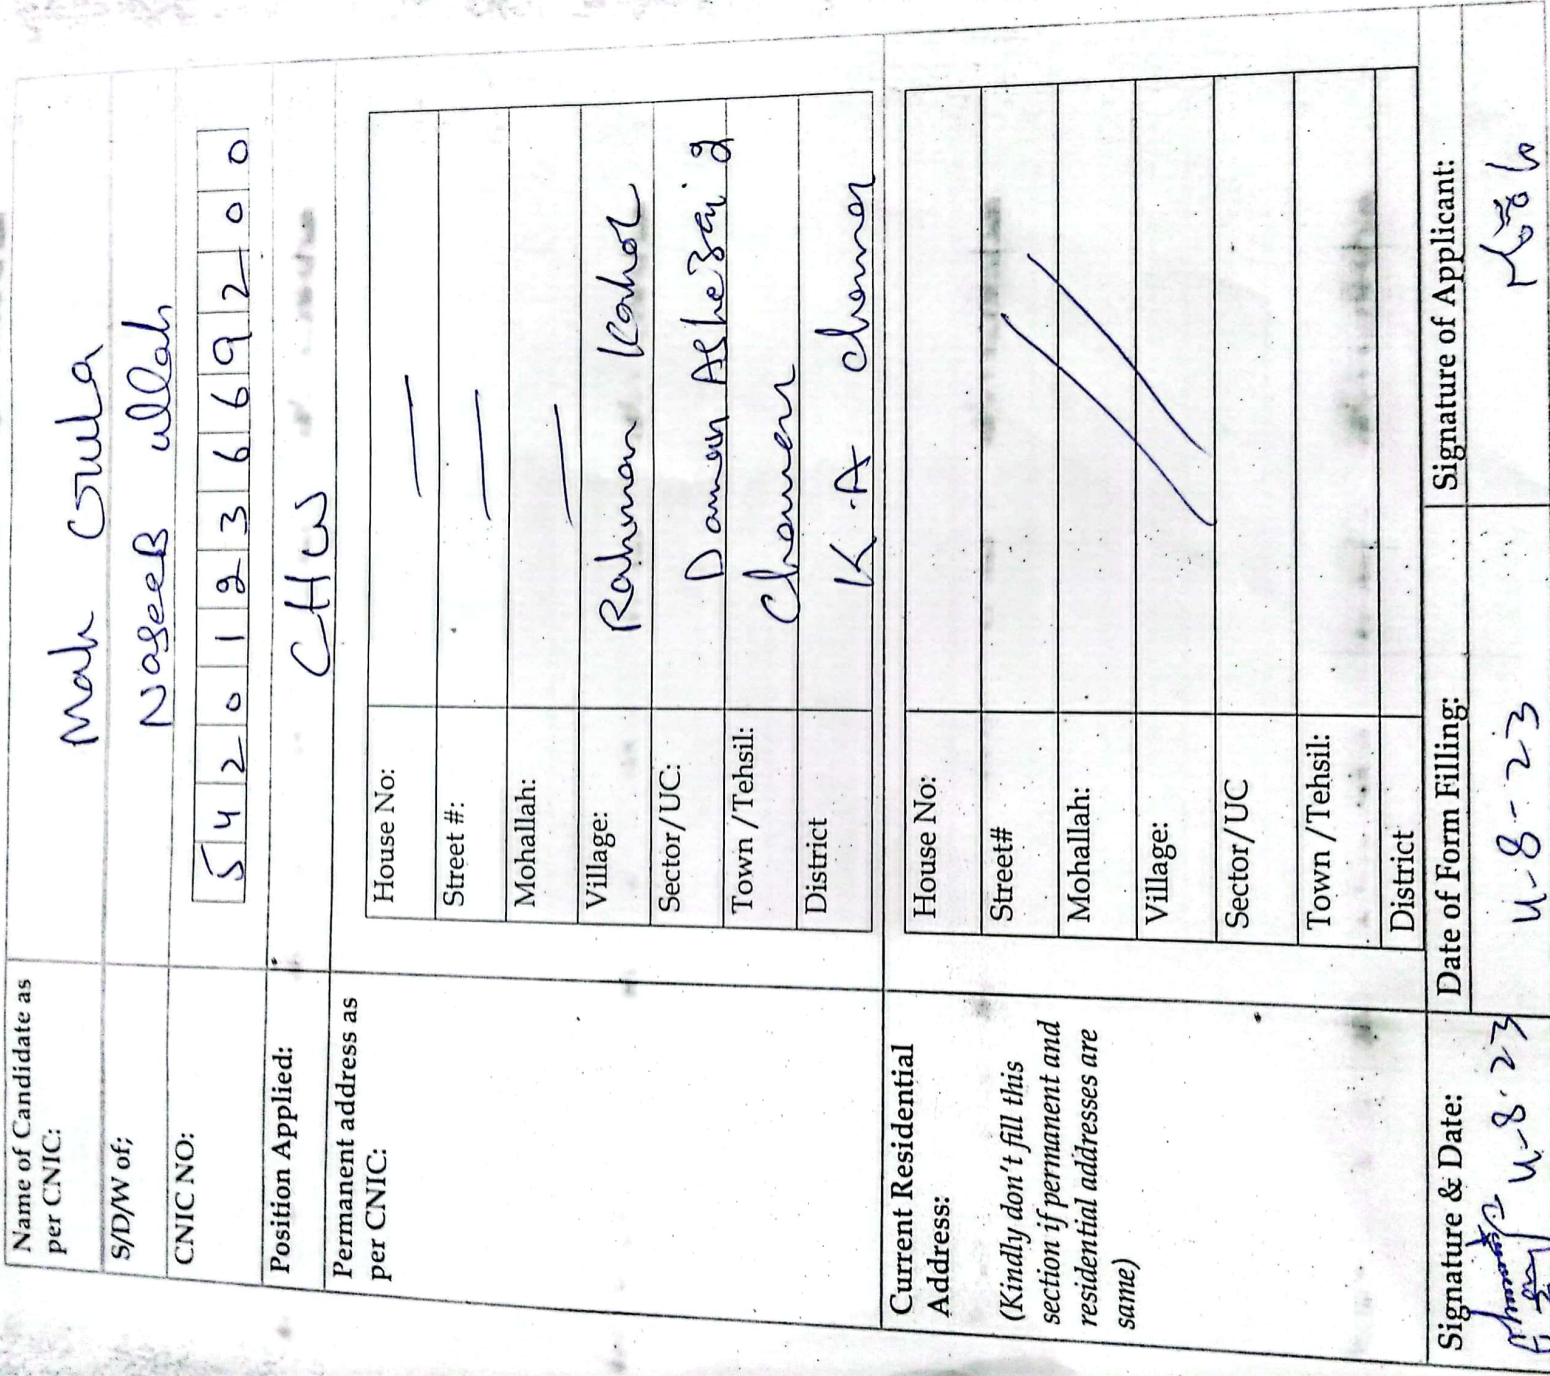 Name of Candidate as per CNIC: Mah Gula
S/D/W of; NaseeB ullah
CNIC NO: 5 4 2 0 1 2 3 6 6 9 2 0 0
Position Applied: CHW
Permanent address as per CNIC:
House No: —
Street #: —
Mohallah: —
Village: Rahman Kahol
Sector/UC: Daman AShezai 2
Town /Tehsil: Chaman
District K.A chaman
Current Residential Address:
(Kindly don't fill this section if permanent and residential addresses are same)
House No:
Street#
Mohallah:
Village:
Sector/UC
Town /Tehsil:
District
Signature & Date: 4-8-23
Date of Form Filling: 4-8-23
Signature of Applicant: